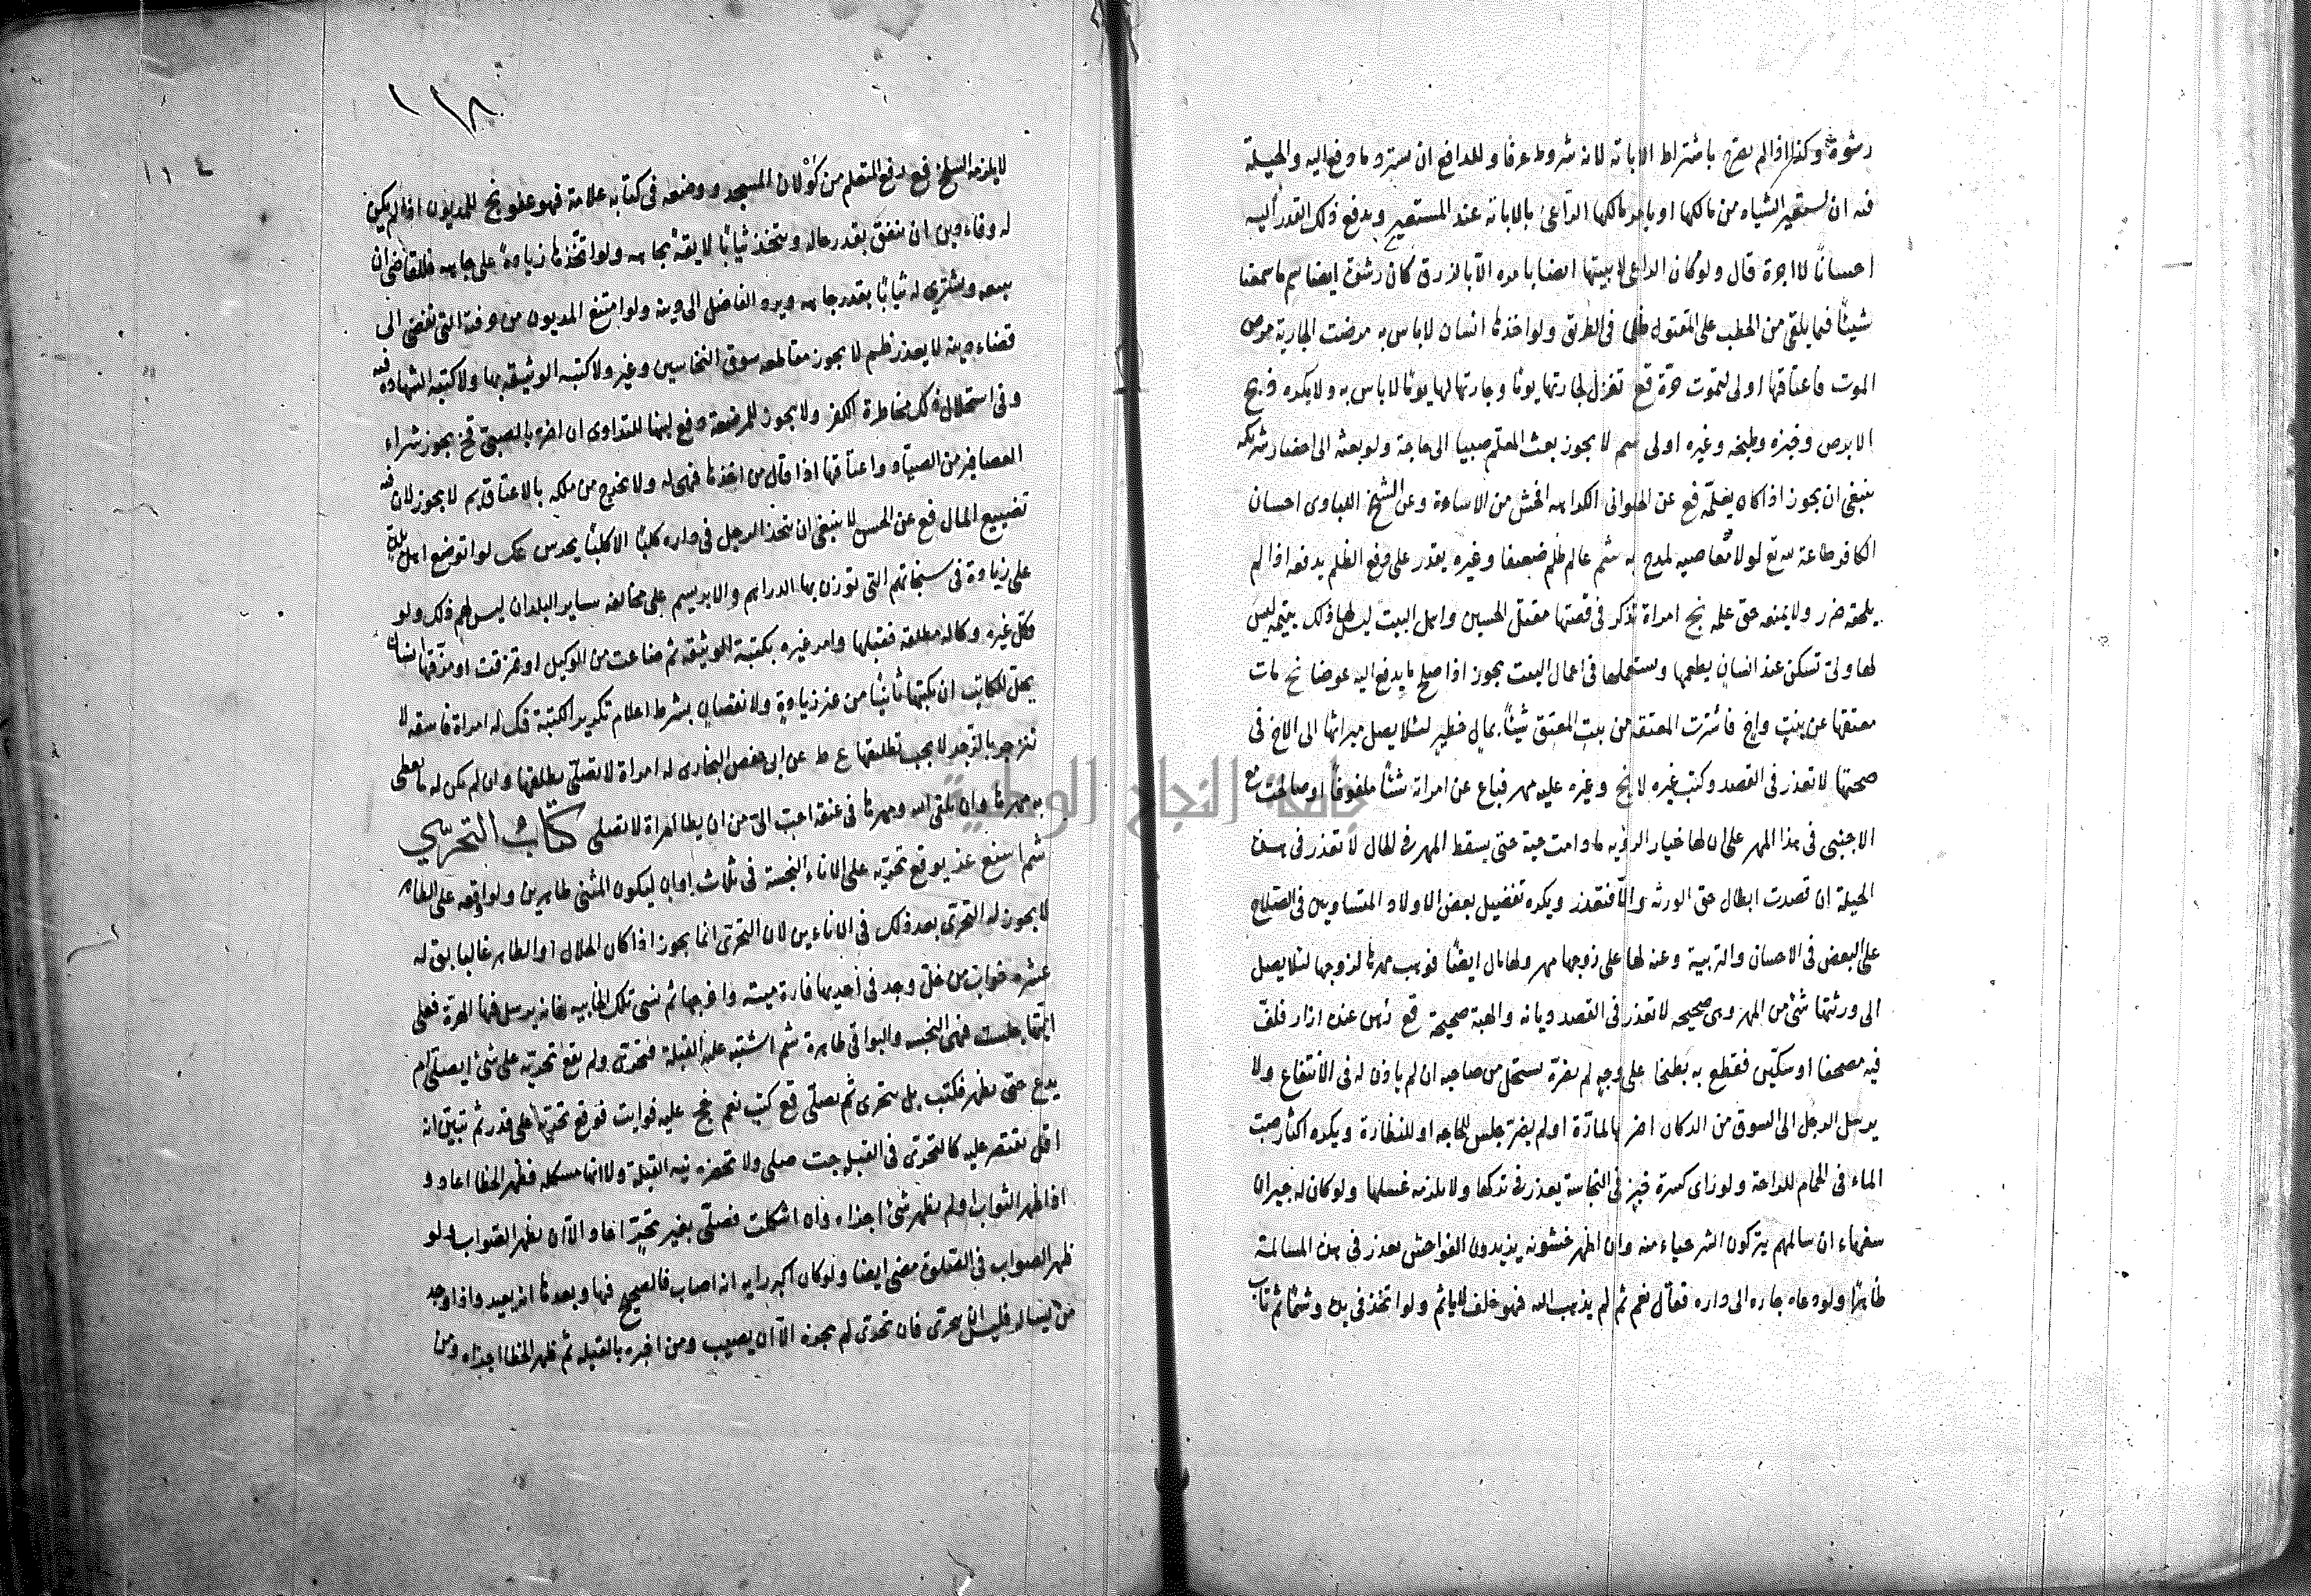 رشوة وكذا اذا لم يصرح باشتراط الاباتة لانه مشروط عرفا وللدافع ان يسترد ما دفع اليه والحيلة
فيه ان يستعير الشياه من مالكها او يأمر مالكها الراعى بالاباتة عند المستعير ويدفع ذلك القدر اليه
احسانا لا اجرة قال ولو كان الراعى لا يبيتها ايضا بامره الا بالزرق كان رشوة ايضا سم ما سمعنا
شيئا فيما يلقى من الحطب على المقتول ظلما فى الطريق ولو اخذها انسان لا باس به مرضت الجارية مرض
الموت فاعتاقها اولى لتموت حرة قع تغزل لجارتها يوما وجارتها لها يوما لا باس به ولا يكره
الابرص وخبزه وطبخه وغيره اولى سم لا يجوز بعث المعلم صبيا الى حاجة ولو بعثه الى احضار شريكه
ينبغى ان يجوز اذا كان يعلمه قع عن الحلوانى افحش من الاساءة وعن الشيخ العبادى احسان
الكافر طاعة لولا معاصيه لمدح به شم عالم ظلم ضعيفا وغيره يقدر على دفع الظلم يدفعه اذا لم
يلحقه ضرر ولا يمنعه حق علمه نج امراة تذكر فى قصتها مقتل الحسين واهل البيت ليس لها ذلك يتيمة ليس
لها ولى تسكن عند انسان يطعمها ويستعملها فى اعمال البيت يجوز اذا صلح ما يدفع اليه عوضا نج مات
معتقها عن بنت واخ فاشترت المعتقة من بنت المعتق شيئا بمال خطير لئلا يصل ميراثها الى الاخ فى
صحتها لا تعذر فى القصد وكتب غيره لا نج وغيره عليه مهر فباع عن امراته شيئا ملفوفا او صالحت مع
الاجنبى فى هذا المهر على ان لها خيار الرؤية ما دامت حية حتى يسقط المهر فى الحال لا تعذر فى هذه
الحيلة ان قصدت ابطال حق الورثة والا فتعذر ويكره تفضيل بعض الاولاد المتساويين فى الصلاح
على البعض فى الاحسان والتربية وعنه لها على زوجها مهر ولها مال ايضا فوهبت مهرها لزوجها لئلا يصل
الى ورثتها شئ من المهر وهى صحيحة لا تعذر فى القصد ديانة والهبة صحيحة قع رهن عنده ازار فلف
فيه مصحفا او سكين فقطع به بطيخا على وجه لم يضره يستحل من صاحبه ان لم ياذن له فى الانتفاع ولا
يرسل الرجل الى السوق من الدكان اضر بالمارة او لم يضر جلس للحاجة او للنظارة ويكره اكثار صب
الماء فى الحمام للراحة ولو راى كسرة خبز فى النجاسة يعذر فى تركها ولا يلزمه غسلها ولو كان له جيران
سفهاء ان سالمهم يتركون الشر حياء منه وان اظهر خشونة يزيدون الفواحش يعذر فى هذه المسالمة
ظاهرا ولو دعاه جاره الى داره فقال نعم ثم لم يذهب اليه فهو خلف لا ياثم ولو اتخذ فى يده وشما ثم تاب
١١٨
لا يلزمه السلخ قع رفع المتعلم من المسجد ووضعه فى كتابه علامة فهو عفو نج للمديون اذا لم يكن
له وفاء دين ان ينفق بقدر حاله ويتخذ ثيابا لايقة بجاهه ولو اتخذها زيادة على جاهه فللقاضى ان
يبيعه ويشترى له ثيابا بقدر جاهه ويرد الفاضل الى دينه ولو امتنع المديون من حرفته التى تفضى الى
قضاء دينه لا يعذر ظم لا يجوز مقاطعة سوق النخاسين وغيره ولا كتبه الوثيقة بها ولا كتبه الشهادة فيه
وفى استحلال ذلك مخاطرة الكفر ولا يجوز للمرضعة دفع لبنها للتداوى ان اضر بالصبى فج يجوز شراء
العصافير من الصياد واعتاقها اذا قال من اخذها فهى له ولا يخرج من ملكه بالاعتاق سم لا يجوز لان فيه
تضييع المال قع عن الحسن لا ينبغى ان يتخذ الرجل فى داره كلبا الا كلبا يحرس عك لو تواضع اهل بلدة
على زيادة فى سنجاتهم التى توزن بها الدراهم والابريسم على مخالفة ساير البلدان ليس لهم ذلك ولو
وكل غيره وكالة مطلقة فقبلها وامر غيره بكتبة الوثيقة ثم ضاعت من الوكيل او تمزقت او مزقها انسان
يحل للكاتب ان يكتبها ثانيا من غير زيادة ولا نقصان بشرط اعلام تكرير الكتبة فك له امراة فاسقة لا
تنزجر بالزجر لا يجب تطليقها ع ط عن ابى حفص البخارى له امراة لا تصلى يطلقها وان لم يكن له ما يعطى
به مهرها وان يلقى الله ومهرها فى عنقه احب الى من ان يطا امراة لا تصلى كتاب التحرى
شم اسنع عذ يوقع تحريه على الاناء النجسة فى ثلاث اوان ليكون المثنى طاهرين ولو اوقعه على الطاهر
لا يجوز له التحرى بعد ذلك فى الاناءين لان التحرى انما يجوز اذا كان الحلال او الطاهر غالبا بق له
عشره خواب من خل وجد فى احديها فارة ميتة واخرجها ثم نسى تلك الخابية فانه يرسل فيها الهرة فعلى
ايتها جلست فهى النجسة والبواقى طاهرة شم اشتبه عليه القبلة فتحرى ولم يقع تحريه على شئ ايصلى ام
يدع حتى يظهر فكتب بل يتحرى ثم يصلى قع كتب نعم فج عليه فوايت فوقع تحريه على قدر ثم تبين انه
اقل يقتصر عليه كالتحرى فى القبلة جت صلى ولا تحضره نية القبلة ولا انها مشكلة فظهر الخطا اعاد و
اذا ظهر الثواب او لم يظهر شئ اجزاه وان اشكلت فصلى بغير تحر اعاد الا ان يظهر الصواب ولو
ظهر الصواب فى الصلوة مضى ايضا ولو كان اكبر رايه انه اصاب فالصحيح فيها وبعدها انه يعيد واذا وجد
من يساله فليس له ان يتحرى فان تحرى لم يجزه الا ان يصيب ومن اخبره بالقبلة ثم ظهر الخطا اجزاه ومن
جامعة النجاح الوطنية